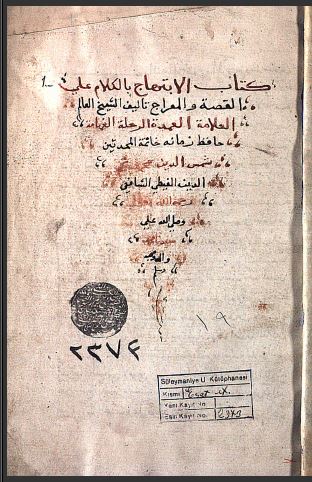 كتاب الابتهاج بالكلام على
القصة والمعراج تاليف الشيخ العالم
العلامة العمدة الرحلة الفهامة
حافظ زمانه خاتمة المحدثين
شمس الدين
الدين الغيطي الشافعي
رحمه الله تعالى
وصلى الله على
سيدنا
وسلم
١٩
٢٣٧٤
Süleymaniye U. Kütüphanesi
Kısmı Esat ef.
Yeni Kayıt No.
Eski Kayıt No.